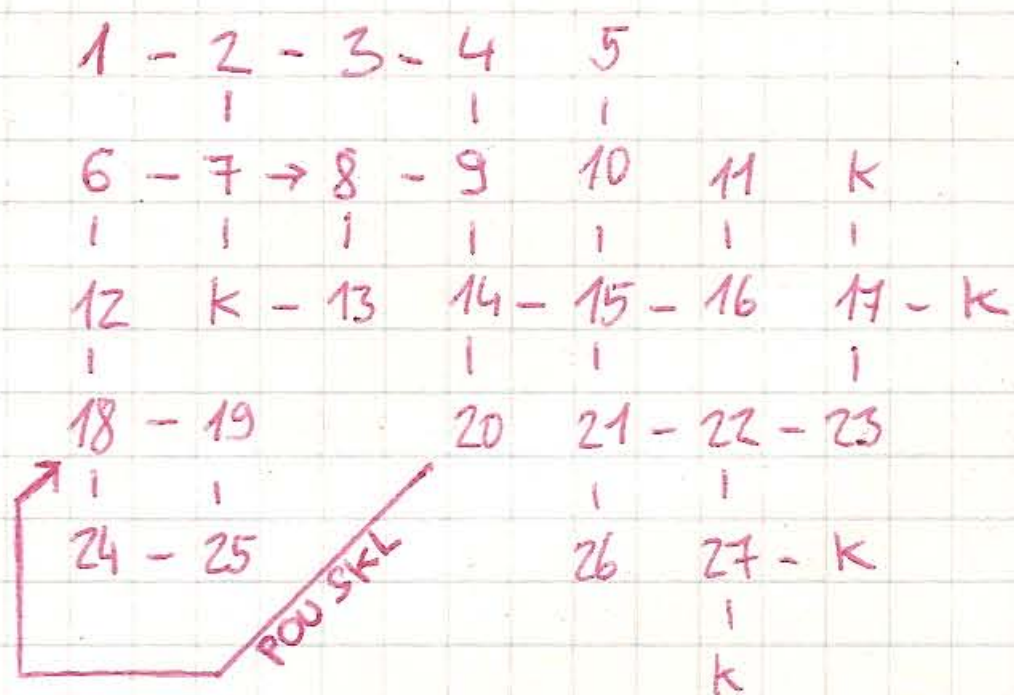 1 - 2 - 3 - 4 5
6 - 7 → 8 - 9 10 11 K
12 K - 13 14 - 15 - 16 17 - K
18 - 19 20 21 - 22 - 23
24 - 25 26 27 - K
POU SKL
K